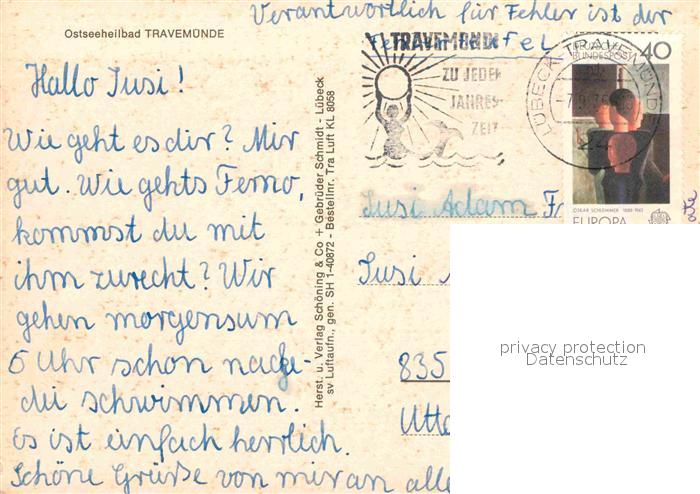 Verantwortlich für Fehler ist der
Ostseeheilbad TRAVEMÜNDE
TRAVEMÜNDE
ZU JEDER
JAHRES-
ZEIT
DEUTSCHE
BUNDESPOST
40
LÜBECK-TRAVEMÜNDE
OSKAR SCHLEMMER 1888-1943
EUROPA
Hallo Susi!
Wie geht es dir? Mir
gut. Wie gehts Ferno,
kommst du mit
ihm zurecht? Wir
gehen morgensum
6 Uhr schon nacke-
dei schwimmen.
Es ist einfach herrlich.
Schöne Grüße von miran alle
Herst. u. Verlag Schöning & Co + Gebrüder Schmidt - Lübeck
sv Luftaufn., gen. SH 1-40872 - Bestellnr. Tra Luft KL 8058
Susi Adam Fr
Susi
835
Utto
privacy protection
Datenschutz